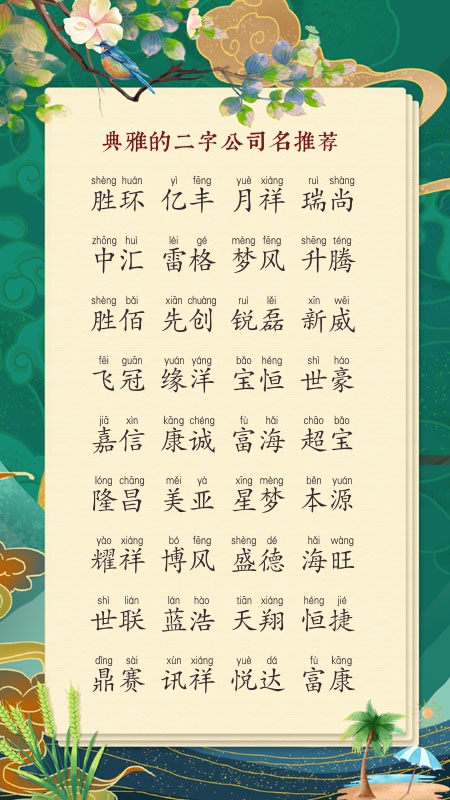 典雅的二字公司名推荐
shèng huán yì fēng yuè xiáng ruì shàng
胜环 亿丰 月祥 瑞尚
zhōng huì léi gé mèng fēng shēng téng
中汇 雷格 梦风 升腾
shèng bǎi xiān chuàng ruì lěi xīn wēi
胜佰 先创 锐磊 新威
fēi guān yuán yáng bǎo héng shì háo
飞冠 缘洋 宝恒 世豪
jiā xìn kāng chéng fù hǎi chāo bǎo
嘉信 康诚 富海 超宝
lóng chāng měi yà xīng mèng běn yuán
隆昌 美亚 星梦 本源
yào xiáng bó fēng shèng dé hǎi wàng
耀祥 博风 盛德 海旺
shì lián lán hào tiān xiáng héng jié
世联 蓝浩 天翔 恒捷
dǐng sài xùn xiáng yuè dá fù kāng
鼎赛 讯祥 悦达 富康